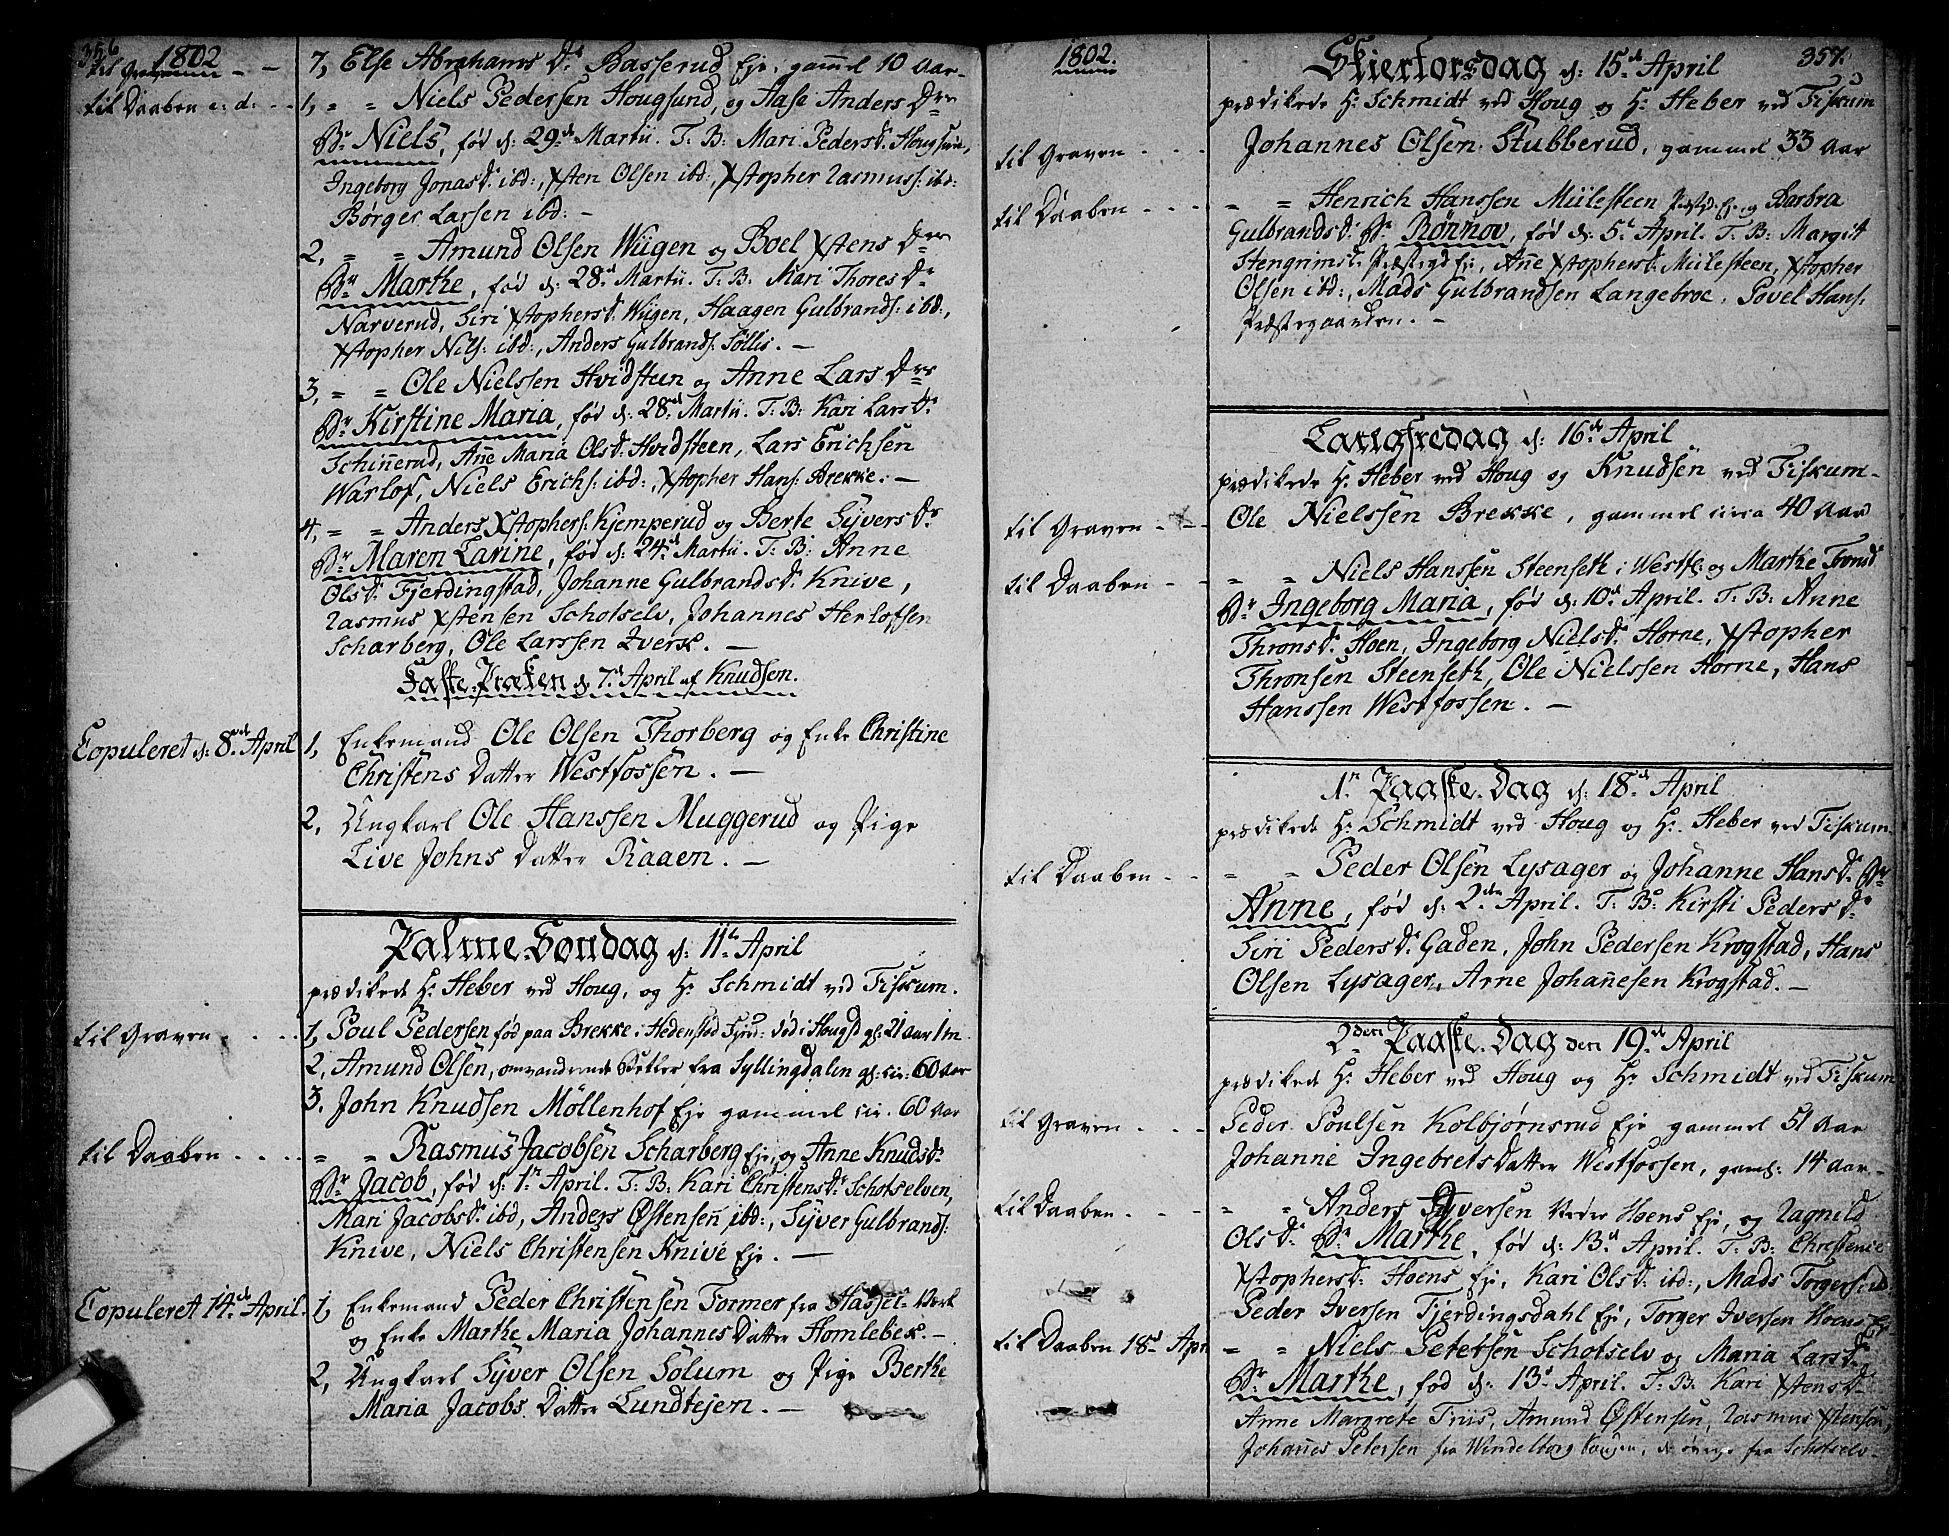 356
1802
til Graven - -
7, Else Abrahams Dr Basserud Eje, gam̃el 10 Aar.
til Daaben e: d: - -
1, " " Niels Pedersen Hougsund, og Aase Anders Drrs
Br Niels, fød d: 29de Martii. T: B: Mari Pedersdr Hougsund,
Ingeborg Jonasdr ibd:, Xsten Olsen ibd:, Xstopher Rasmuss: ibd:
Børger Larsen ibd: -
2, " " Amund Olsen Wiigen og Boel Xstens Drrs
Br Marthe, fød d: 28de Martii. T: B: Mari Thores Dr
Narverud, Siri Xstophersdr Wiigen, Haagen Gulbrands: ibd:,
Xstopher Nils: ibd:, Anders Gulbrands: Sollis. -
3, " " Ole Nielssen Hvidsteen og Anne Lars Drrs
Br Kirstine Maria, fød d: 28de Martii. T: B: Kari Lars Dr
Schiñerud, Añe Maria Olsdr Hvidsteen, Lars Erichsen
Warlof, Niels Erichs: ibd:, Xstopher Hans: Brekke. -
4, " " Anders Xstophers: Kjemperud og Berte Syvers Dr
Br Maren Carine, fød d: 24de Martii. T: B: Anne
Olsdr Fjerdingstad, Johanne Gulbrandsdr Knive,
Rasmus Xstensen Schotselv, Johannes Herlofsen
Scharberg, Ole Larssen Tverk. -
Faste-Præken d: 7de April af Knudsen.
Copuleret d: 8de April
1, Enkemand Ole Olsen Thorberg og Enke Christine
Christens Datter Westfossen. -
2, Ungkarl Ole Hanssen Muggerud og Pige
Live Johns Datter Raaen. -
Palme-Søndag d: 11te April
prædikede Hr Heber ved Houg, og Hr Schmidt ved Fiskum.
til Graven. - - -
1, Poul Pedersen fød paa Brekke i Hedensted Fjerd: død i Hougsd gl: 21 Aar 1 m.
2, Amund Olsen, omvandrende Betler fra Syllingdalen gl: cir: 60 Aar
3. John Knudsen Möllenhof Eje gammel cir. 60 Aar
til Daaben - - - -
" " Rasmus Jacobsen Scharberg Eje, og Anne Knudsdr
Br Jacob, fød d: 1te April. T: B: Kari Christensdr Schotselven,
Mari Jacobsdr ibd, Anders Østensen̄ ibd:, Syver Gulbrands:
Knive, Niels Christensen Knive Eje. -
Copuleret 14de April.
1, Enkemand Peder Christensen Former fra Hassel-Verk
og Enke Marthe Maria Johannes Datter Homlebek. -
2, Ungkarl Syver Olsen Solum og Pige Berthe
Maria Jacobs Datter Lundtejen. -
1802.
357.
Skiertorsdag d: 15de April
prædikede Hr Schmidt ved Houg og Hr Heber ved Fiskum
til Graven - - - -
Johannes Olsen Stubberud, gammel 33 Aar
til Daaben - - - -
" " Henrich Hanssen Miilesteen Præstgd Eje og Barbra
Gulbrandsdr Br Rønnov, fød d: 5te April. T: B: Margit
Stengrimsdr Præstegd Eje, Añe Xstophersdr Miilesteen, Xstopher
Olsen ibd:, Mads Gulbrandsen Langebroe, Povel Hans:
Præstegaarden. -
Langfredag d: 16de April
prædikede Hr Heber ved Houg og Knudsen ved Fiskum
til Graven - - -
Ole Nielssen Brekke, gammel circa 40 Aar
til Daaben - -
" " Niels Hanssen Steenseth i Westf: og Marthe Tronsd
Br Ingeborg Maria, fød d: 10de April. T: B: Anne
Thronsdr Hoen, Ingeborg Nielsdr Horne, Xstopher
Thronsen Steenseth, Ole Nielssen Horne, Hans
Hanssen Westfossen. -
1te Paaske-Dag d: 18de April
prædikede Hr Schmidt ved Houg og Hr Heber ved Fiskum
til Daaben - -
" " Peder Olsen Lysager og Johanne Hansdr Br
Anne, fød d: 2den April. T: B: Kirsti Peders Dr
Siri Peders Dr Gaden, John Pedersen Krogstad, Hans
Olsen Lysager, Arne Johañesen Krogstad. -
2den Paaske-Dag den 19de April
prædikede Hr Heber ved Houg og Hr Schmidt ved Fiskum
til Graven - - -
Peder Poulsen Kolbjørnsrud Eje gammel 51 Aar
Johanne Ingebrets Datter Westfossen, gam̃l: 14 Aar.
til Daaben. - - -
" " Anders Syversen Hoens Eje, og Ragnild
Olsdr Br Marthe, fød d: 13de April. T: B: Christence
Xstophersdr Hoens Eje, Kari Olsdr ibd:, Mads Torgers: ibd
Peder Iversen Fjerdingsdahl Eje, Torger Iversen Hoens Eje
til Daaben 18de Apr
" " Niels Petersen Schotselv og Maria Larsdr
Br Marthe, fød d: 13de April. T: B: Kari Xstensdr
Anne Margrete Friis, Amund Østensen, Rasmus Xstensen,
Johañes Petersen fra Windelborg Sougen, de øvrige fra Schotselv